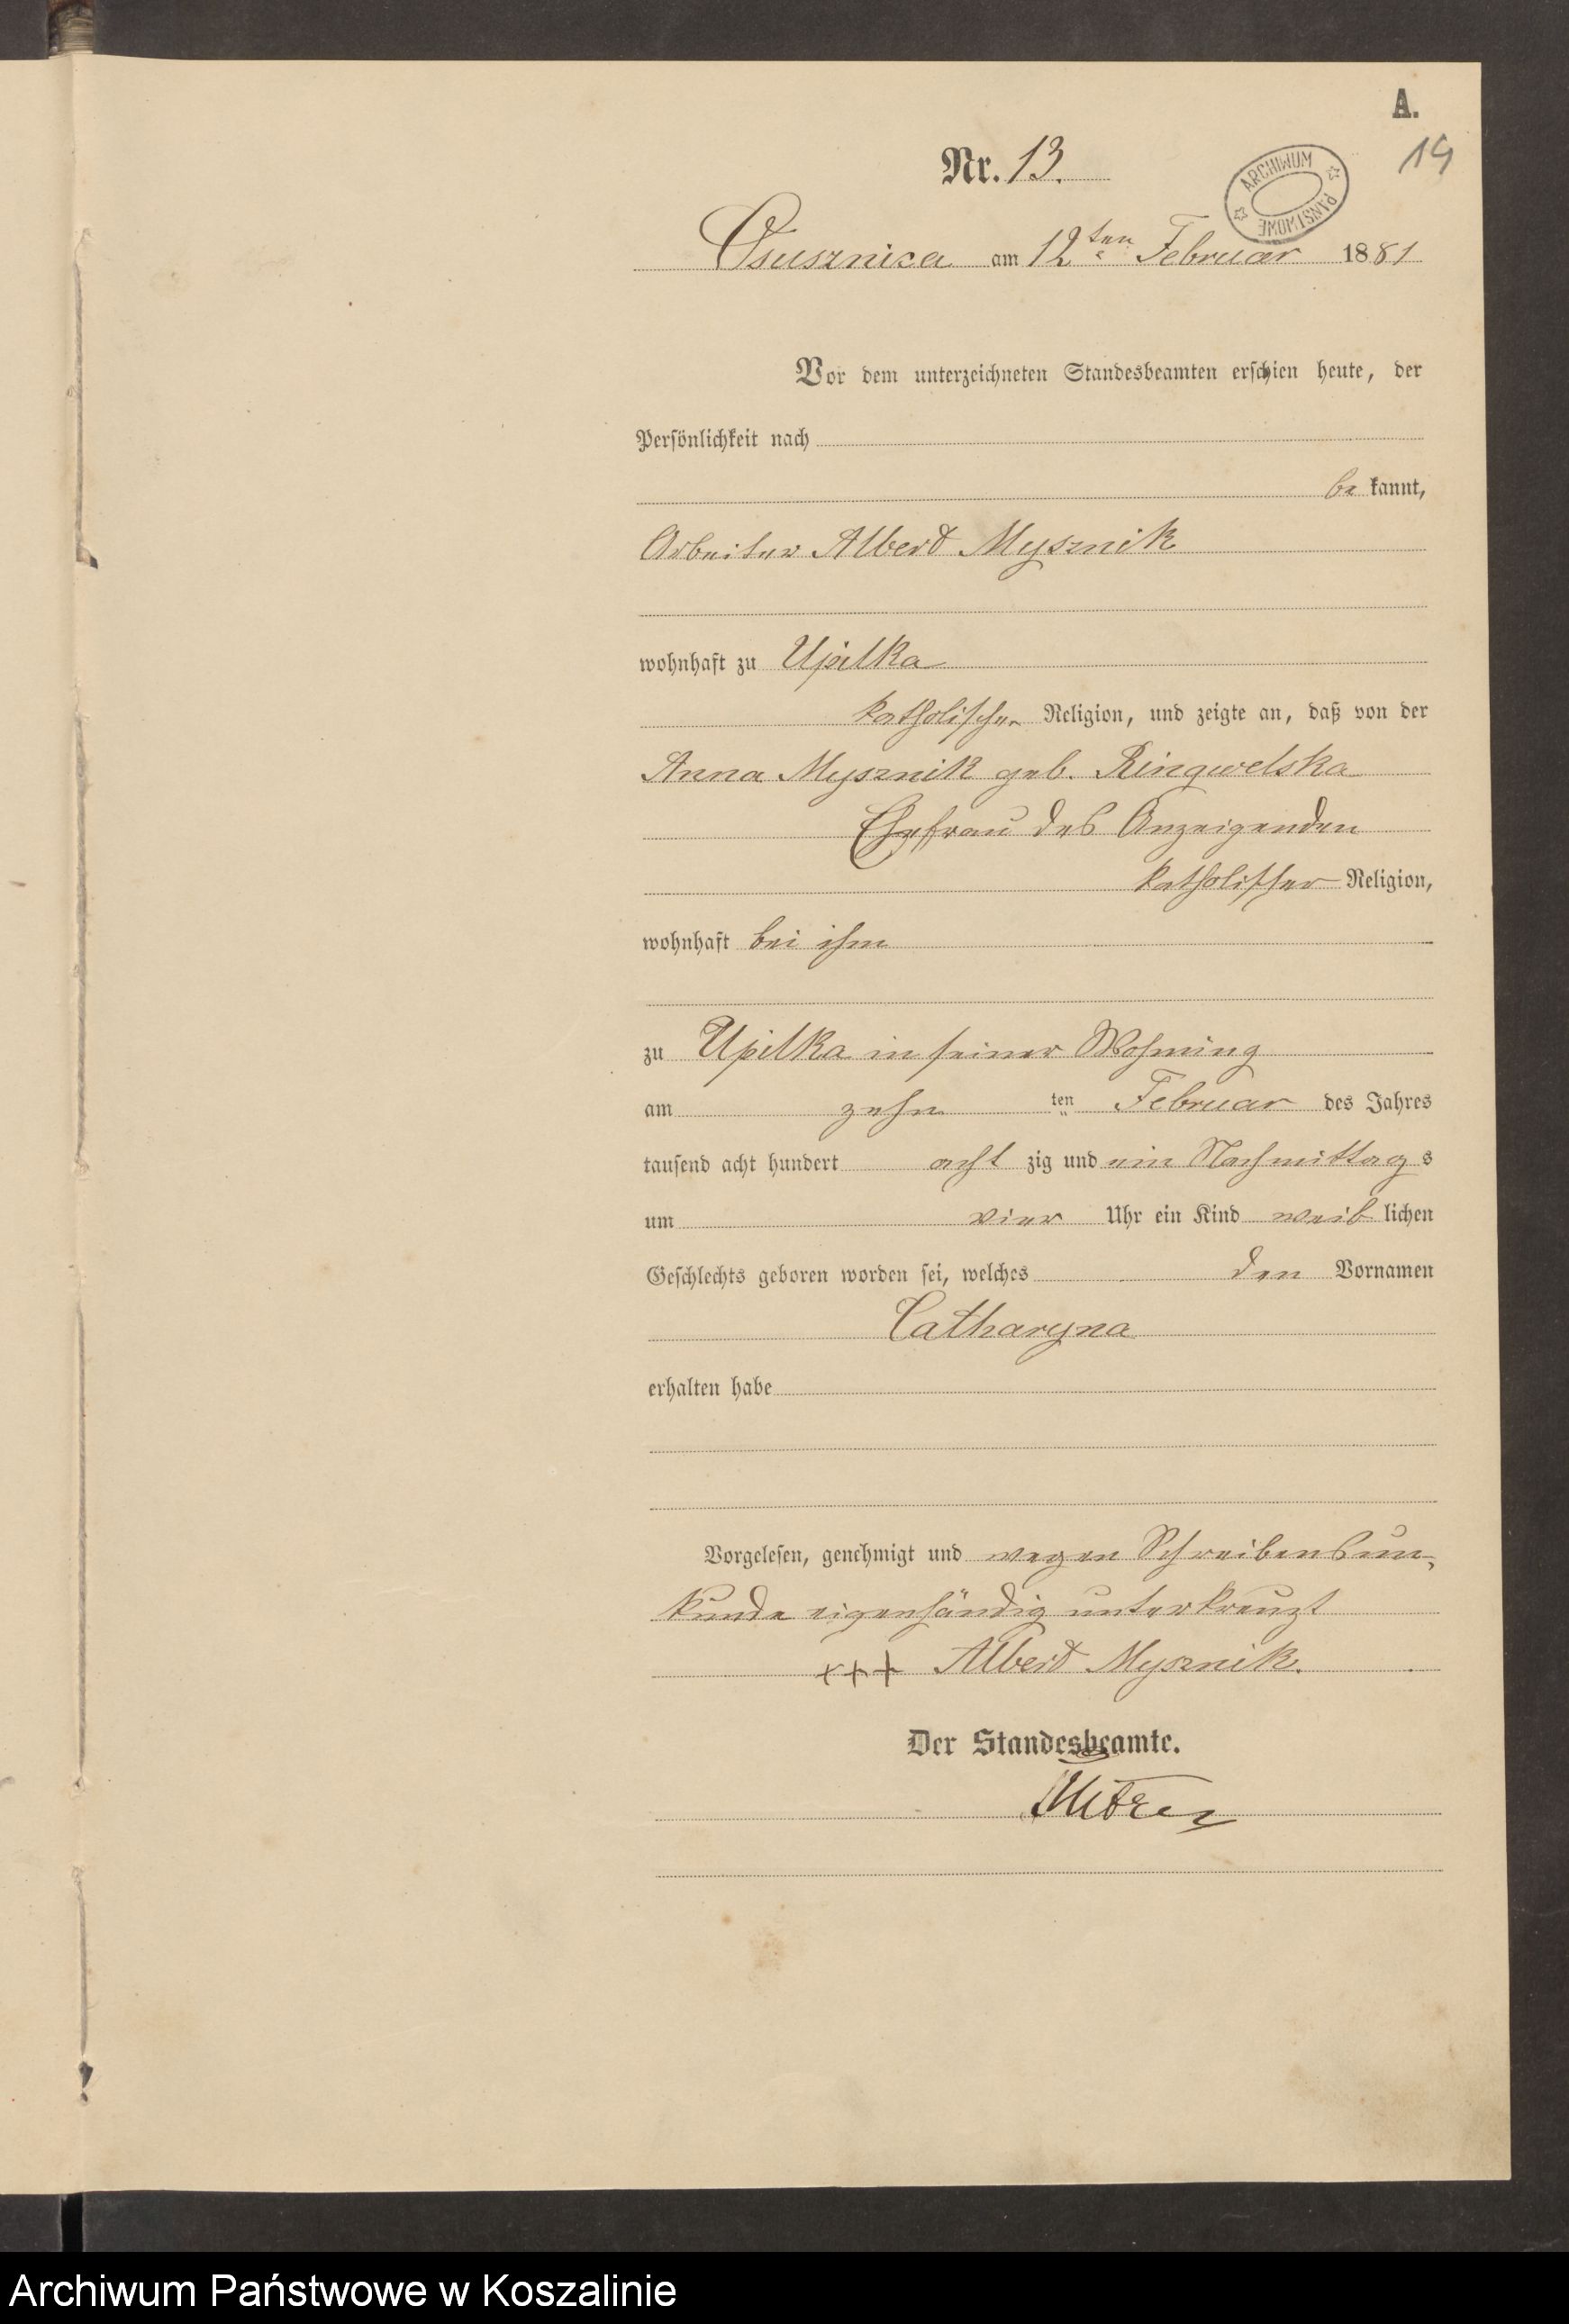 A.
19
Nr. 13.
ARCHIWUM PAŃSTWOWE
Osusznica am 12ten Februar 1881
Vor dem unterzeichneten Standesbeamten erschien heute, der
Persönlichkeit nach
be kannt,
Arbeiter Albert Mysznik
wohnhaft zu Upilka
katholischer Religion, und zeigte an, daß von der
Anna Mysznik geb. Ringwelska
Ehefrau des Anzeigenden
katholischer Religion,
wohnhaft bei ihm
zu Upilka in seiner Wohnung
am zehn ten Februar des Jahres
tausend acht hundert acht zig und ein Nachmittag s
um vier Uhr ein Kind weib lichen
Geschlechts geboren worden sei, welches den Vornamen
Catharyna
erhalten habe
Vorgelesen, genehmigt und wegen Schreibensun-
kunde eigenhändig unterkreuzt
+++ Albert Mysznik.
Der Standesbeamte.
Archiwum Państwowe w Koszalinie